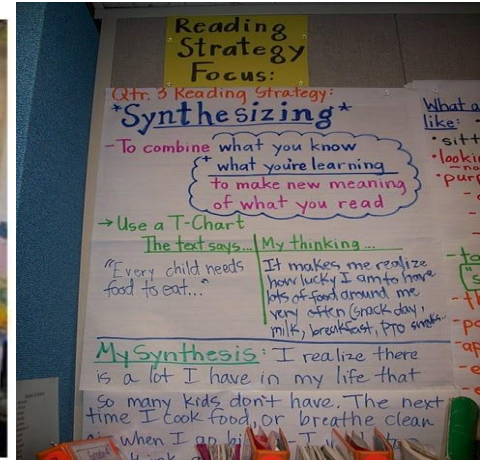 Reading
Strategy
Focus:
Qtr. 3 Reading Strategy:
*Synthesizing*
- To combine what you know
+ what you're learning
to make new meaning
of what you read
→ Use a T-Chart
The text says... My thinking...
"Every child needs
food to eat..."
It makes me realize
how lucky I am to have
lots of food around me
very often (snack day,
milk, breakfast, PTO
My Synthesis: I realize there
is a lot I have in my life that
so many kids don't have. The next
time I cook food, or breathe clean
when I go
What a
like:
• sitt
• lookin
• purp